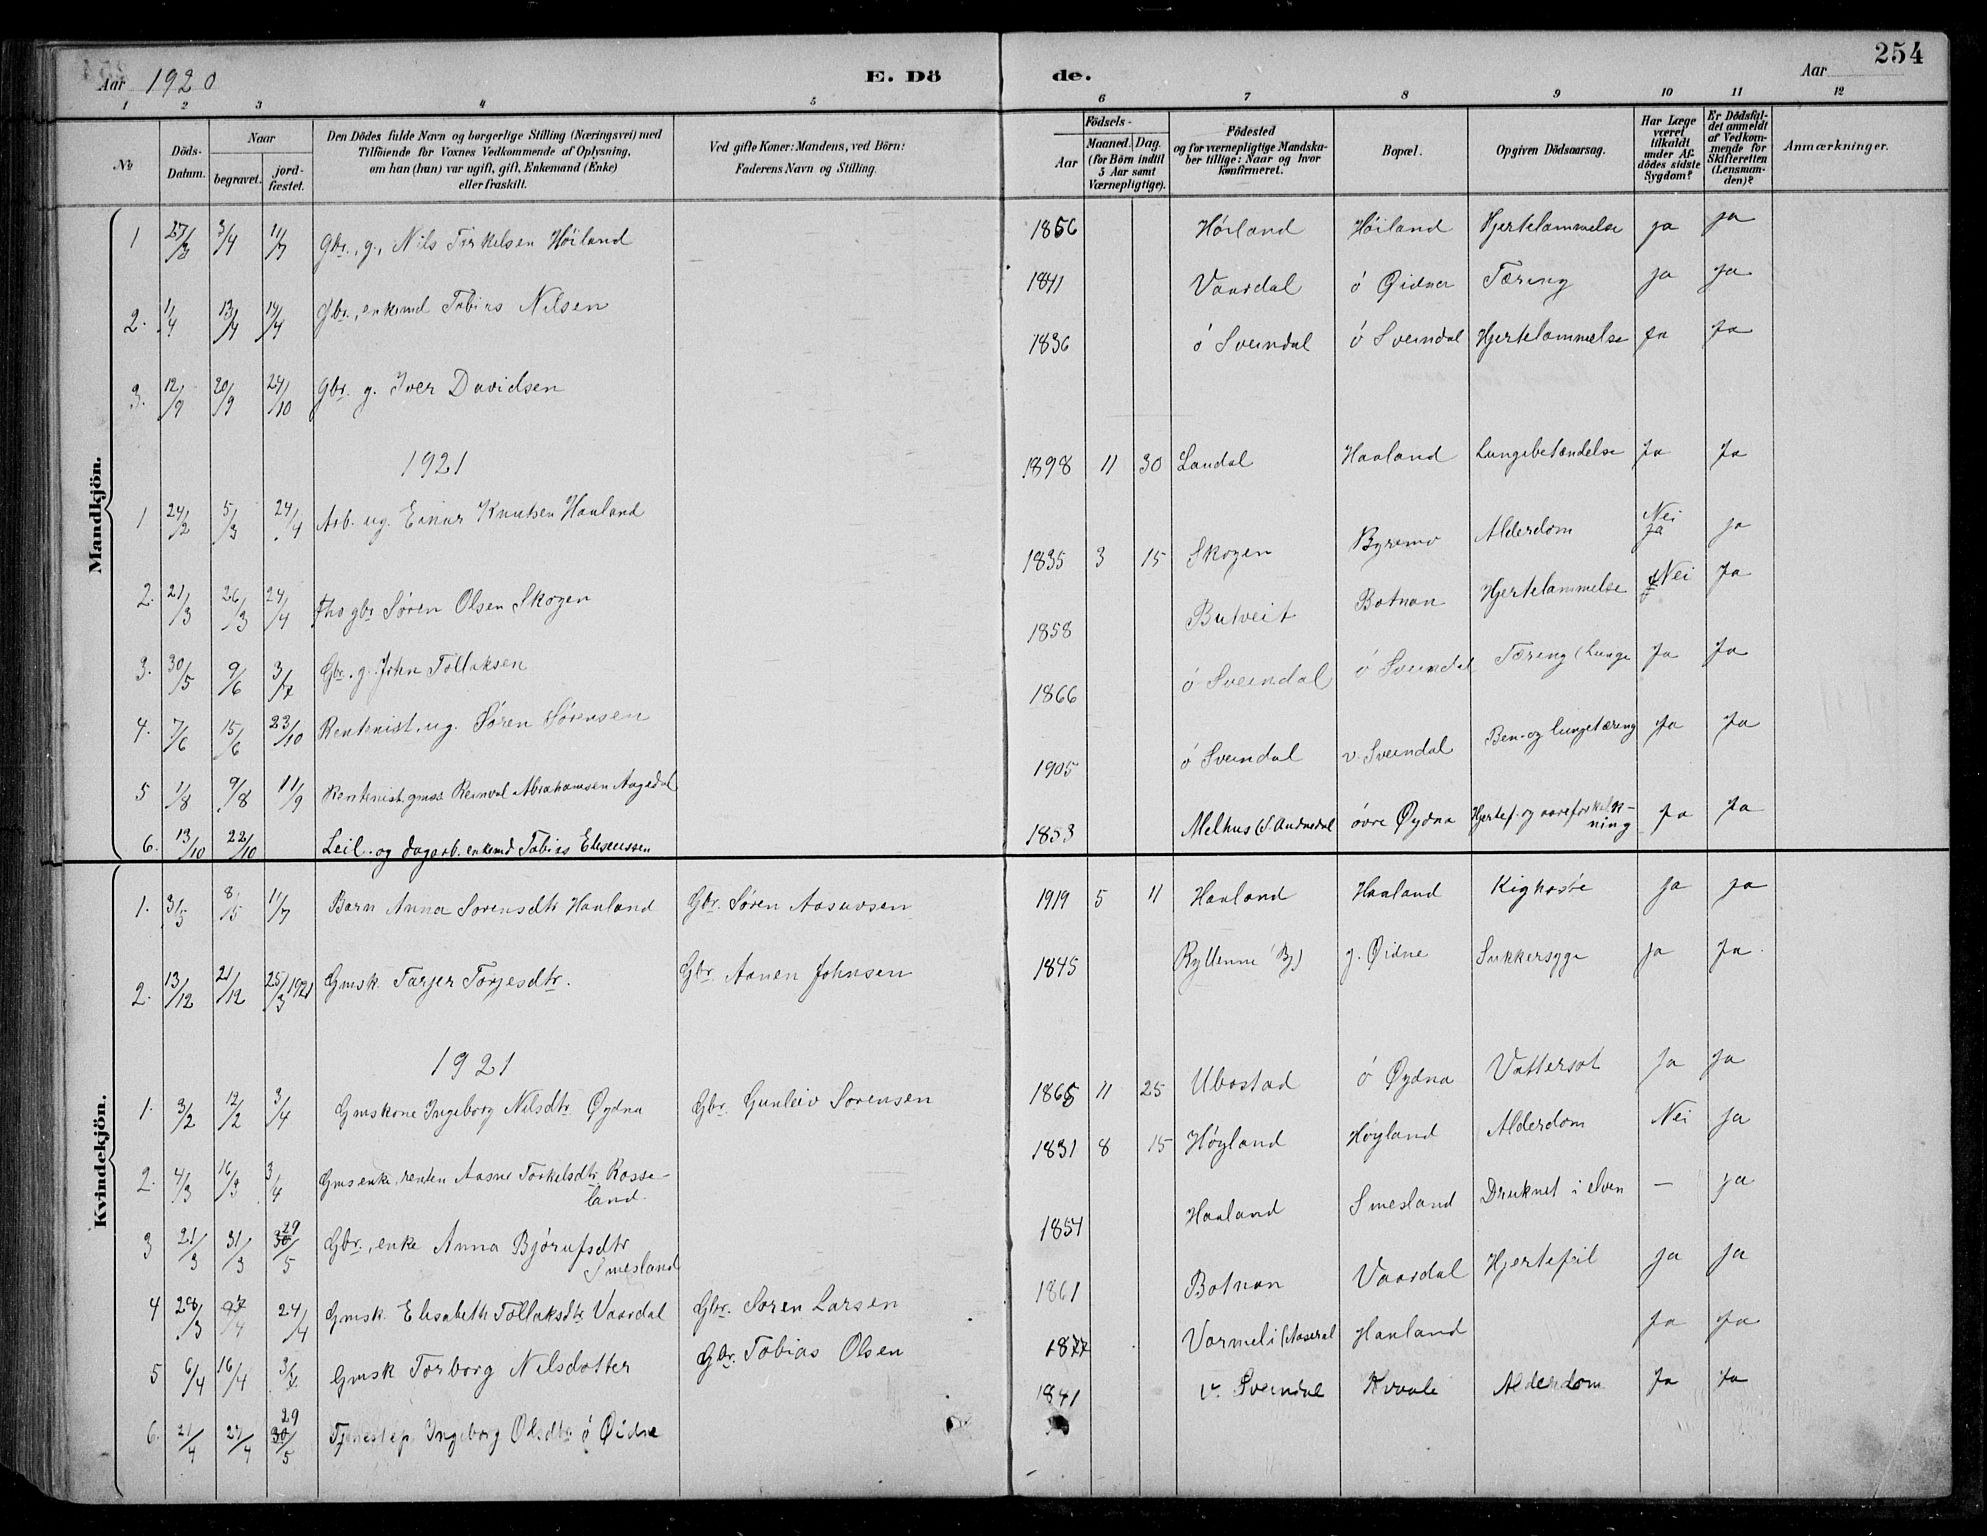 254
Aar 1920 E. Dö de. Aar
1 2 3 4 5 6 7 8 9 10 11 12
No
Döds-Datum.
Naar
begravet.
jord-fæstet.
Den Dödes fulde Navn og borgerlige Stilling (Næringsvei) med
Tilföiende for Voxnes Vedkommende af Oplysning,
om han (hun) var ugift, gift, Enkemand (Enke)
eller fraskilt.
Ved gifte Koner: Mandens, ved Börn:
Faderens Navn og Stilling.
Födsels-
Aar
Maaned. Dag.
(for Börn indtil
5 Aar samt
Værnepligtige).
Födested
og for værnepligtige Mandska-
ber tillige: Naar og hvor
konfirmeret.
Bopæl.
Opgiven Dödsaarsag.
Har Læge
været
tilkaldt
under Af-
dödes sidste
Sygdom?
Er Dödsfal-
det anmeldt
af Vedkom-
mende for
Skifteretten
(Lensman-
den)?
Anmærkninger.
Mandkjön.
1 27/3 3/4 11/7 Gbr., g., Nils Tirkelsen Höiland 1856 Höiland Höiland Hjertelammelse ja ja
2. 1/4 13/4 14/4 Gbr., enkemd Tobias Nilsen 1841 Vaardal ó Øidner Tæring ja Ja
3. 12/9 20/9 24/10 Gbr. g. Iver Davidsen 1836 ó Sveindal ó Sveindal Hjertelammelse Ja Ja
1921
1 24/2 5/3 24/4 Arb. ug. Einar Knutsen Haaland 1898 11 30 Laudal Haaland Lungebetændelse Ja Ja
2. 21/3 26/3 24/4 Fho gbr Søren Olsen Skogen 1835 3 15 Skogen Byremo Alderdom Nei ja ja
3. 30/5 9/6 3/7 Gbr. g. John Tollaksen 1858 Butveit Botnan Hjertelammelse Nei Ja
4. 7/6 15/6 23/10 Rentenist, ug. Søren Sørensen 1866 ó Sveindal ó Sveindal Tæring (Lunge Ja Ja
5 1/8 9/8 11/9 Rentenist, gmss Reinval Abrahamsen Aagedal 1905 ó Sveindal v. Sveindal Ben- og lungetæring Ja Ja
6. 13/10 22/10 Leil. og dagarb. enkemd Tobias Eliseussen 1853 Melhus (S. Audnedal óvre Øydna Hjertef. og aareforkalk-
ning Ja Ja
Kvindekjön.
1. 3/5 8/5 11/7 Barn Anna Sorensdtr Haaland Gbr. Søren Aasuvsen 1919 5 11 Haaland Haaland Kighoste ja ja
2. 13/12 21/12 25/3 1921 Gmsk. Tarjer Torjesdtr. Gbr. Aanen Johnsen 1845 Ryttenne (Bj) g. Øidne Sukkersyge ja Ja
1921
1. 3/2 12/2 3/4 Gmskone Ingeborg Nilsdtr. Øydna Gbr. Gunleiv Sorensen 1865 11 25 Ubostad ó Øydna Vattersot Ja Ja
2. 4/3 16/3 3/4 Gmsenke, renten Aasne Torkelsdtr. Rosse-
land. 1831 8 15 Høyland Høyland Alderdom Nei ja
3 21/3 31/3 30 29/5 Gbr., enke Anna Bjørufsdtr
Smesland 1854 Haaland Smesland Druknet i elven — ja
4 28/3 7/4 24/4 Gmsk. Elisabeth Tollaksdtr. Vaardal Gbr. Søren Larsen 1861 Botnan Vaardal Hjertefeil ja ja
5 6/4 16/4 3/7 Gmsk Torborg Nilsdotter Gbr. Tobias Olsen 1877 Vormeli (Aaseral Haaland Ja Ja
6. 21/4 27/4 30 29/5 Tjenestep. Ingeborg Olsdtr ó Øidne 1841 v. Sveindal Kvaale Alderdom Ja Ja